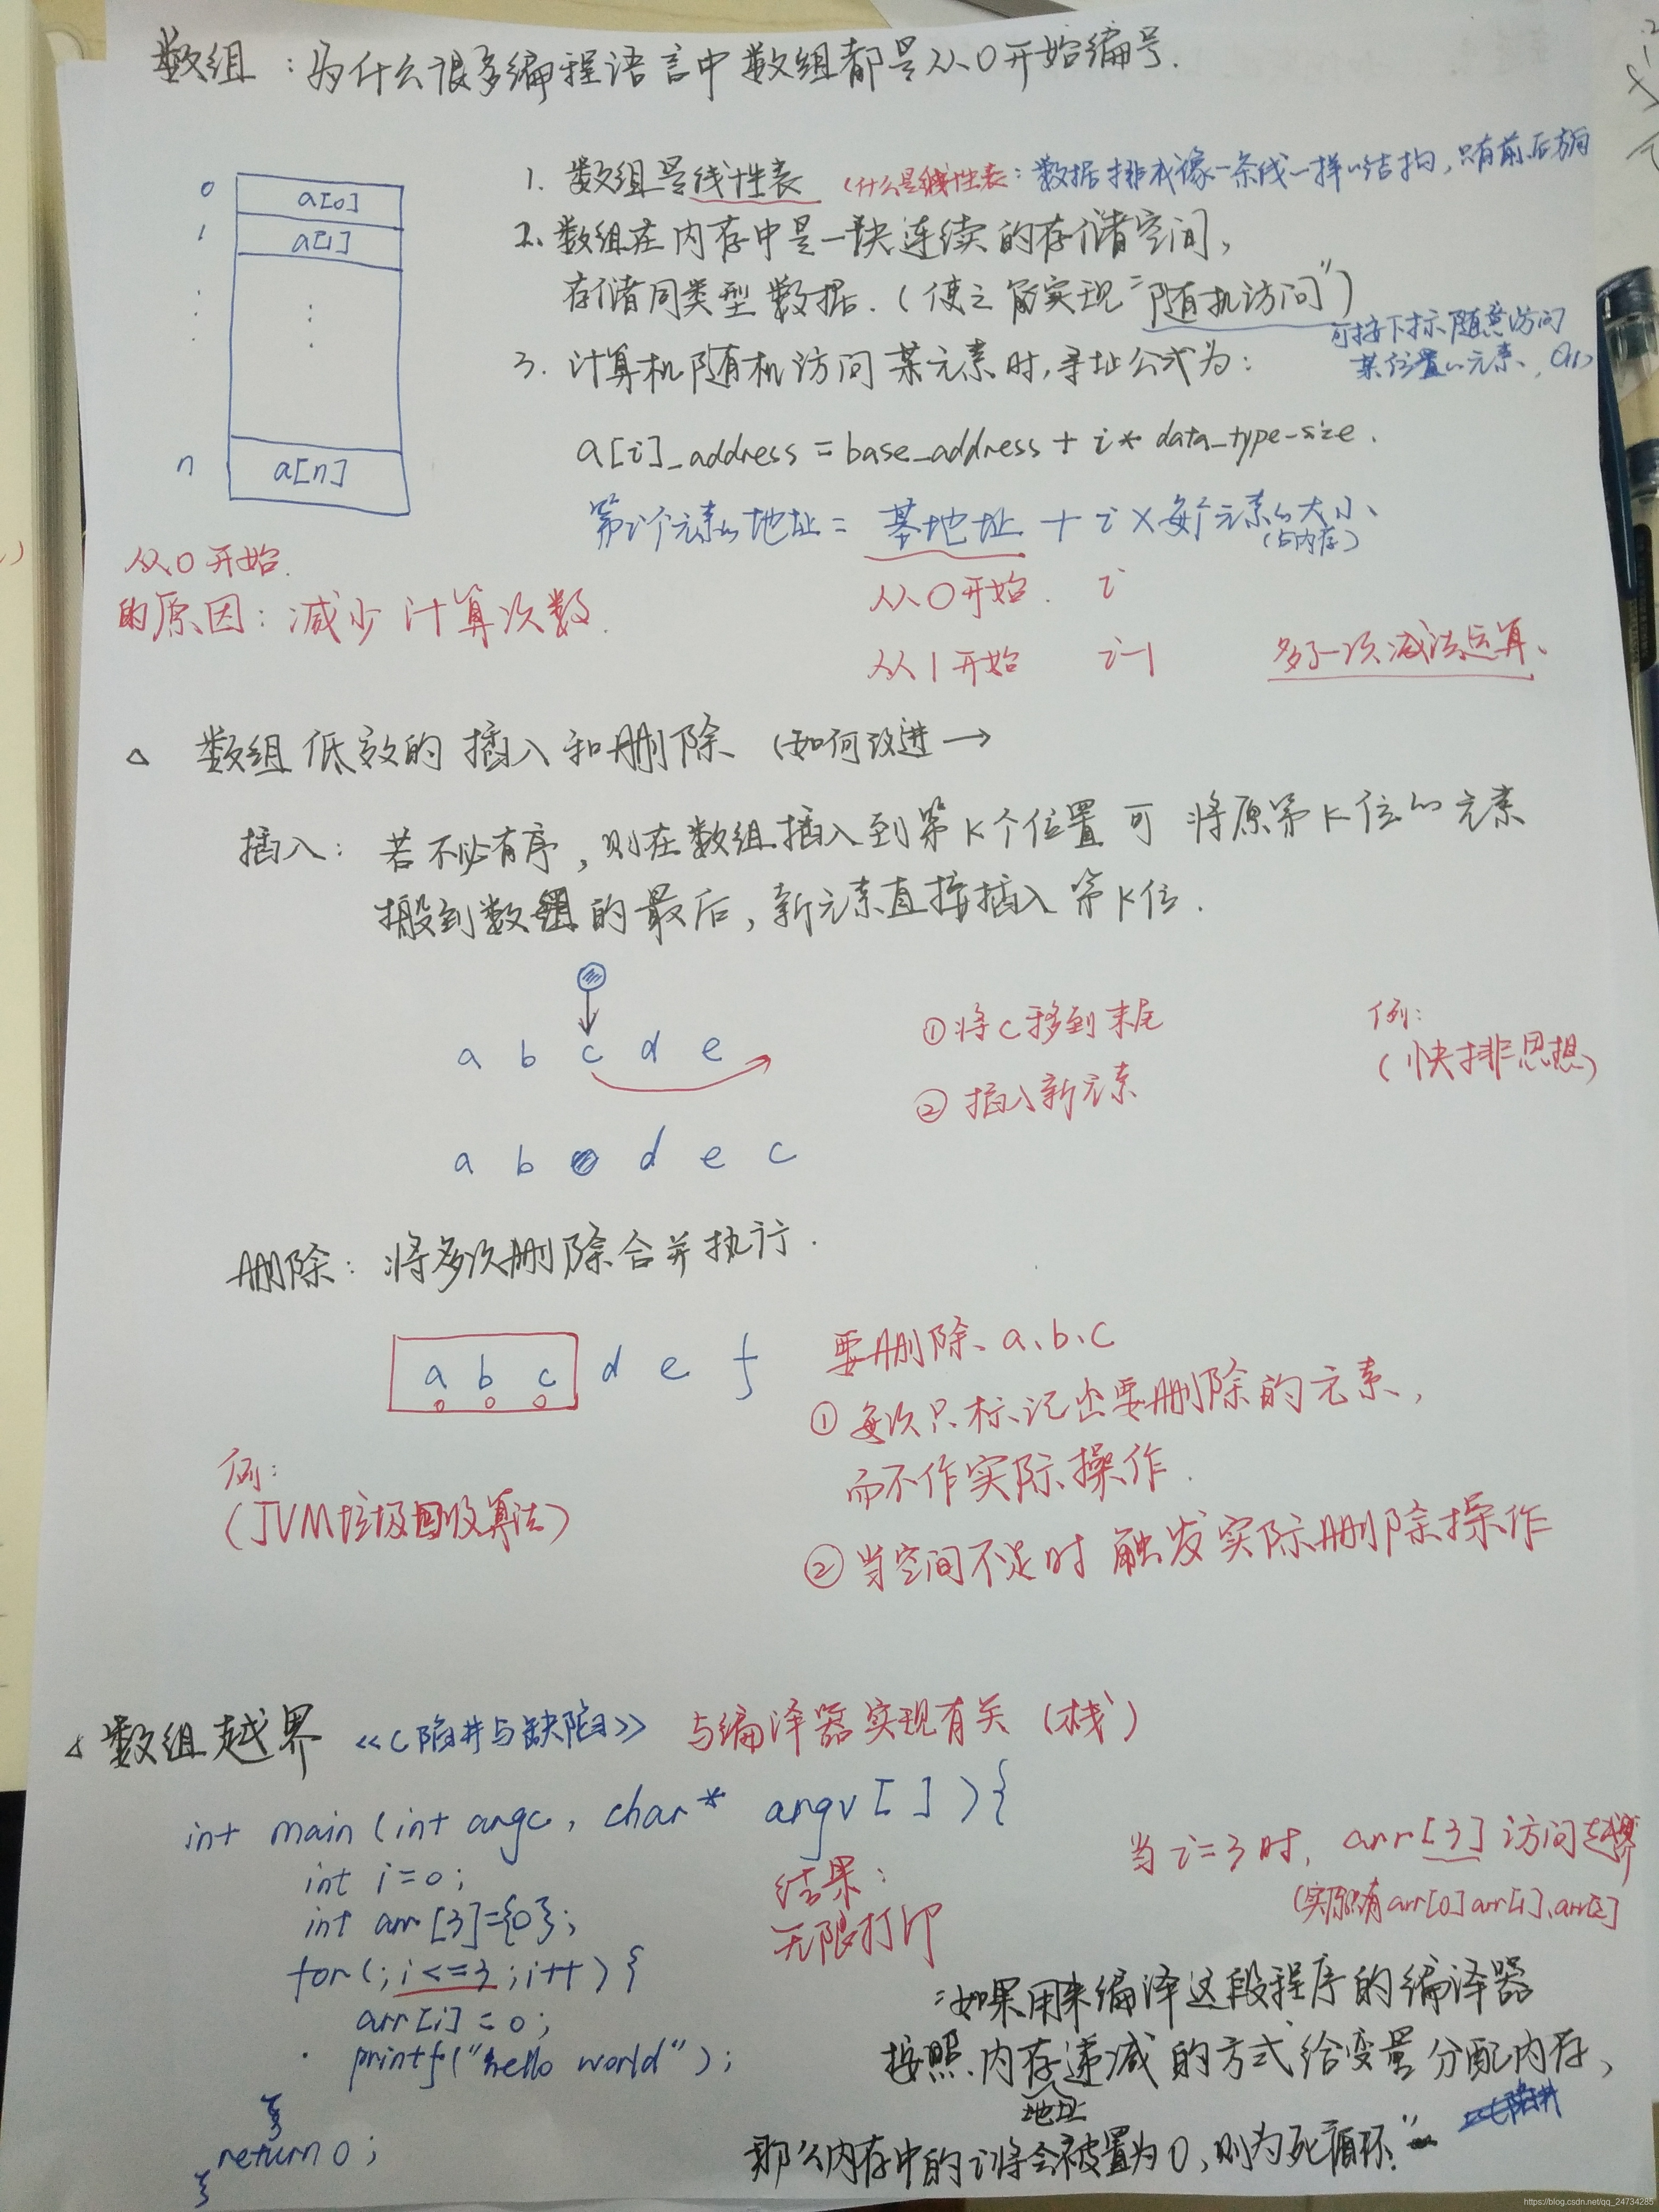 数组：为什么很多编程语言中数组都是从0开始编号.
0 a[0]
1 a[1]
n a[n]
1. 数组是线性表 (什么是线性表：数据排成像一条线一样的结构,只有前后方向
2. 数组在内存中是一块连续的存储空间,
存储同类型数据.(使之能实现"随机访问")
可按下标随意访问
某位置的元素, O(1)
3. 计算机随机访问某元素时,寻址公式为:
a[i]_address = base_address + i * data_type-size.
第i个元素的地址 = 基地址 + i × 每个元素的大小
(占内存)
从0开始.
的原因：减少计算次数.
从0开始. i
从1开始 i-1 多了一次减法运算.
△ 数组低效的插入和删除 (如何改进→
插入: 若不必有序,则在数组插入到第K个位置可将原第K位的元素
搬到数组的最后,新元素直接插入第K位.
a b c d e
①将c移到末尾
②插入新元素
例:
(快排思想)
a b d e c
删除: 将多次删除合并执行.
a b c d e f
要删除a、b、c
①每次只标记出要删除的元素,
而不作实际操作.
②当空间不足时触发实际删除操作
例:
(JVM垃圾回收算法)
△数组越界 《C陷井与缺陷》 与编译器实现有关(栈)
int main (int argc, char* argv[ ] ){
int i=0;
int arr[3]={0};
for(; i<=3 ;i++){
arr[i] = 0;
printf("hello world");
}
return 0;
}
结果:
无限打印
当i=3时, arr[3]访问越界
(实际只有arr[0]arr[1]、arr[2]
"如果用来编译这段程序的编译器
按照内存地址递减的方式给变量分配内存,
那么内存中的i将会被置为0,则为死循环."
https://blog.csdn.net/qq_24734285